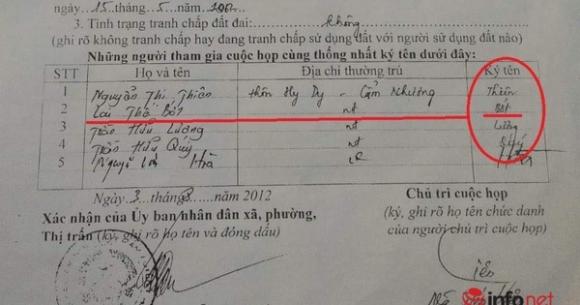 ngày...15...tháng...5...năm...2012
3. Tình trạng tranh chấp đất đai: không
(ghi rõ không tranh chấp hay đang tranh chấp sử dụng đất với người sử dụng đất nào)
Những người tham gia cuộc họp cùng thống nhất ký tên dưới đây:
STT Họ và tên Địa chỉ thường trú Ký tên
1 Nguyễn Thị Thiên thôn Hy Duy - Cẩm Nhượng Thiên
2 Lại Thế Bót nt Bót
3 Trần Hữu Lương nt Lương
4 Trần Hữu Quý nt Quý
5 Nguyễn Hà
Ngày 3 tháng 8 năm 2012
Xác nhận của Ủy ban nhân dân xã, phường, Chủ trì cuộc họp
Thị trấn (ký, ghi rõ họ tên và đóng dấu) (ký, ghi rõ họ tên chức danh
của người chủ trì cuộc họp)
infonet